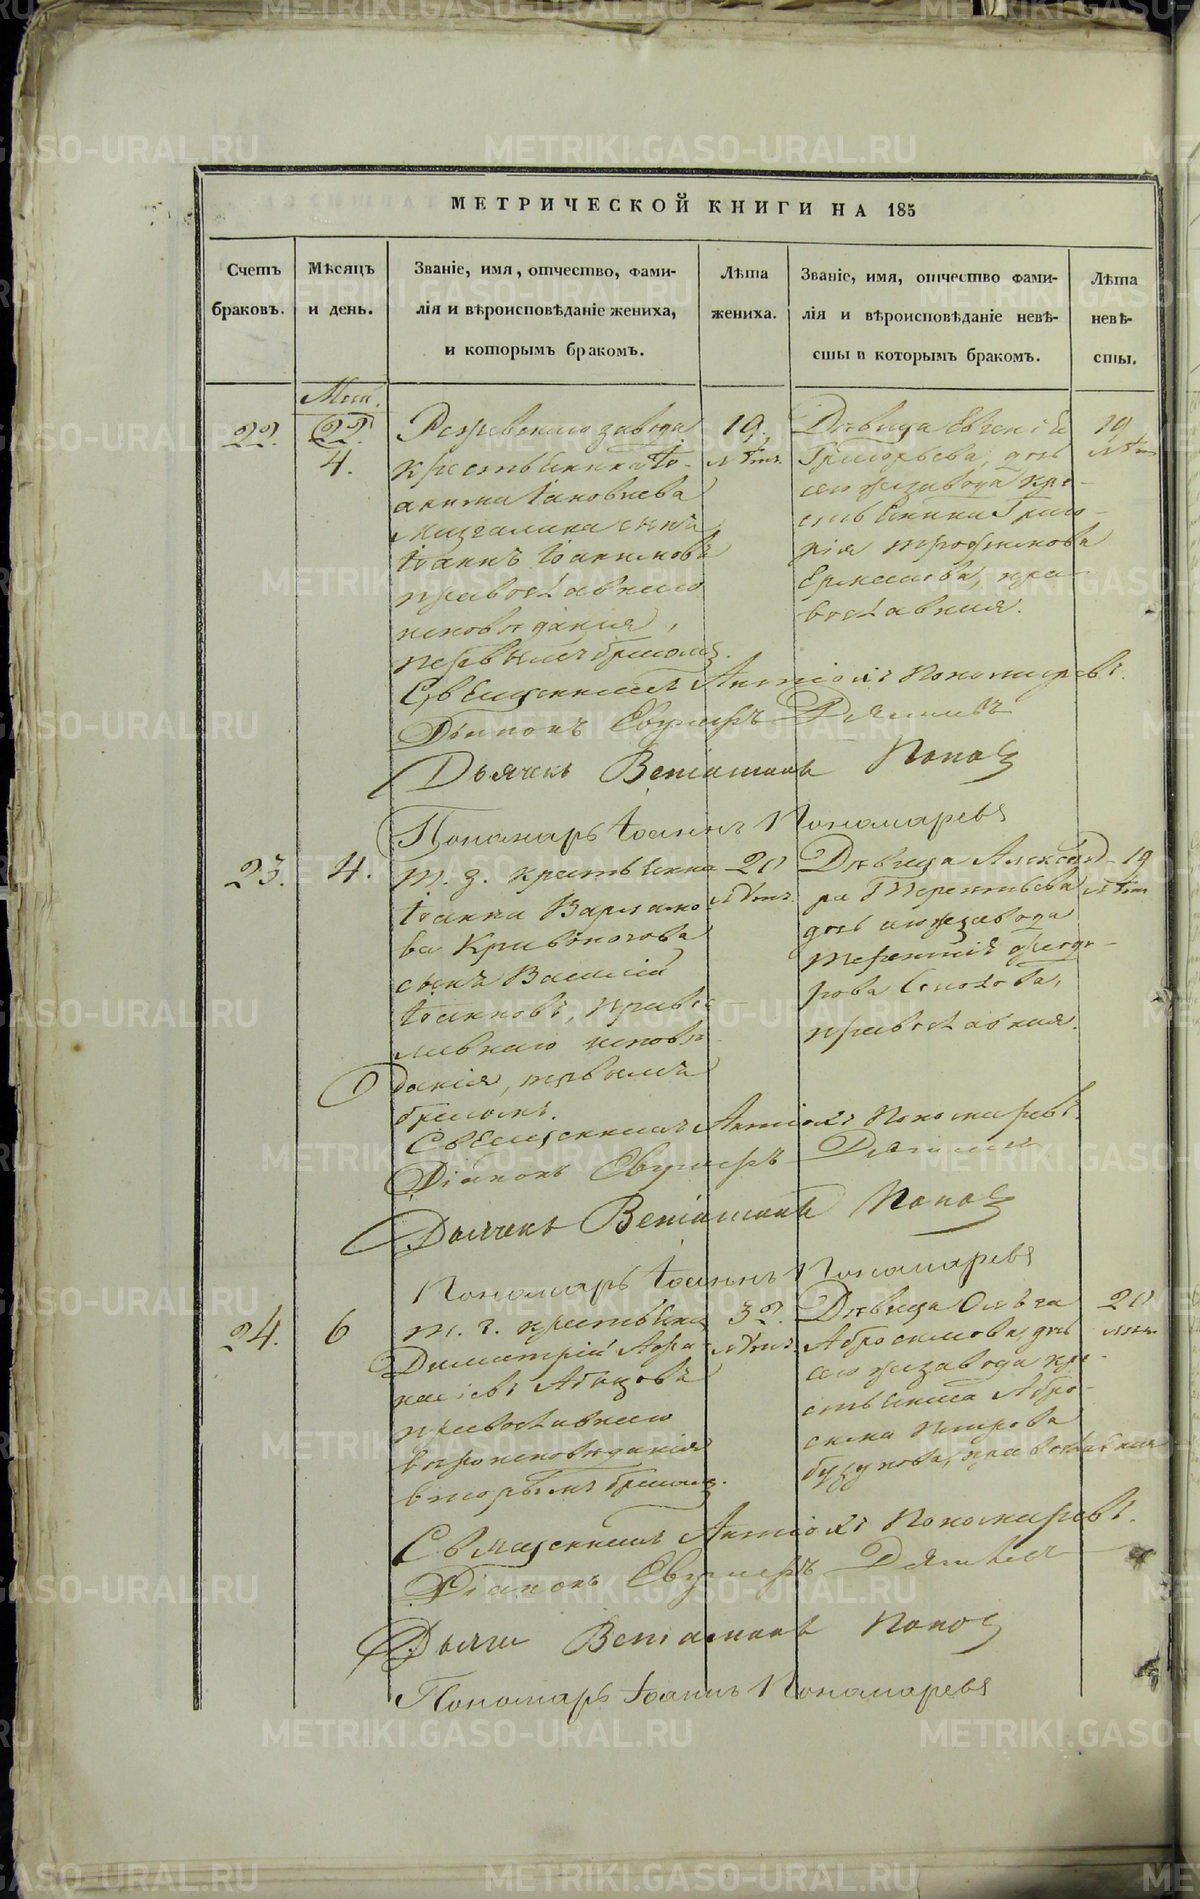 МЕТРИЧЕСКОЙ КНИГИ НА 185
Счетъ браковъ.
Мѣсяцъ и день.
Званіе, имя, отчество, фами-
лія и вѣроисповѣданіе жениха,
и которымъ бракомъ.
Лѣта
жениха.
Званіе, имя, отчество фами-
лія и вѣроисповѣданіе невѣ-
сты и которымъ бракомъ.
Лѣта
невѣ-
сты.
22.
4.
Режевскаго завода
крестьянина Іо-
акима Іаковлева
сына
Іоаннъ Іоакимовъ
православнаго
исповѣданія,
первымъ бракомъ.
19.
лѣтъ.
Дѣвица Евгенія
Григорьева, дочь
того жъ завода кре-
стьянина Григо-
рія Трофимова
пра-
вославная.
19
лѣтъ
Священникъ Антіохъ Пономаревъ.
Діаконъ
Дьячекъ Веніаминъ Попов
Пономарь Іоаннъ Пономаревъ
23.
4.
т. з. крестьянина
Іоанна Варламо
ва Кривоногова
сынъ Василій
Іоанновъ, правос
лавнаго исповѣ-
данія, первымъ
бракомъ.
20
лѣтъ.
Дѣвица Александ-
ра Терентьева
дочь того жъ завода
Терентія Ѳедо-
рова
православная.
19
лѣтъ
Священникъ Антіохъ Пономаревъ.
Діаконъ
Дьячекъ Веніаминъ Попов
Пономарь Іоаннъ Пономаревъ
24.
6
т. з. крестьянинъ
Димитрій Аѳа-
насіевъ
православнаго
вѣроисповѣданія
вторымъ бракомъ.
32.
лѣтъ.
Дѣвица Ольга
Абросимова, дочь
того жъ завода кре-
стьянина Абро-
сима Петрова
православная
20
лѣтъ.
Священникъ Антіохъ Пономаревъ.
Діаконъ
Веніаминъ Попов
Пономарь Іоаннъ Пономаревъ
METRIKI.GASO-URAL.RU